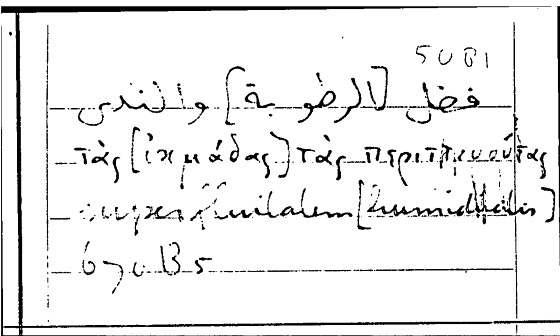 50B1
فضل [الرطوبة] والندى
τὰς [ἰκμάδας] τὰς περιττευούσας
superfluitatem [humiditatis]
670B5